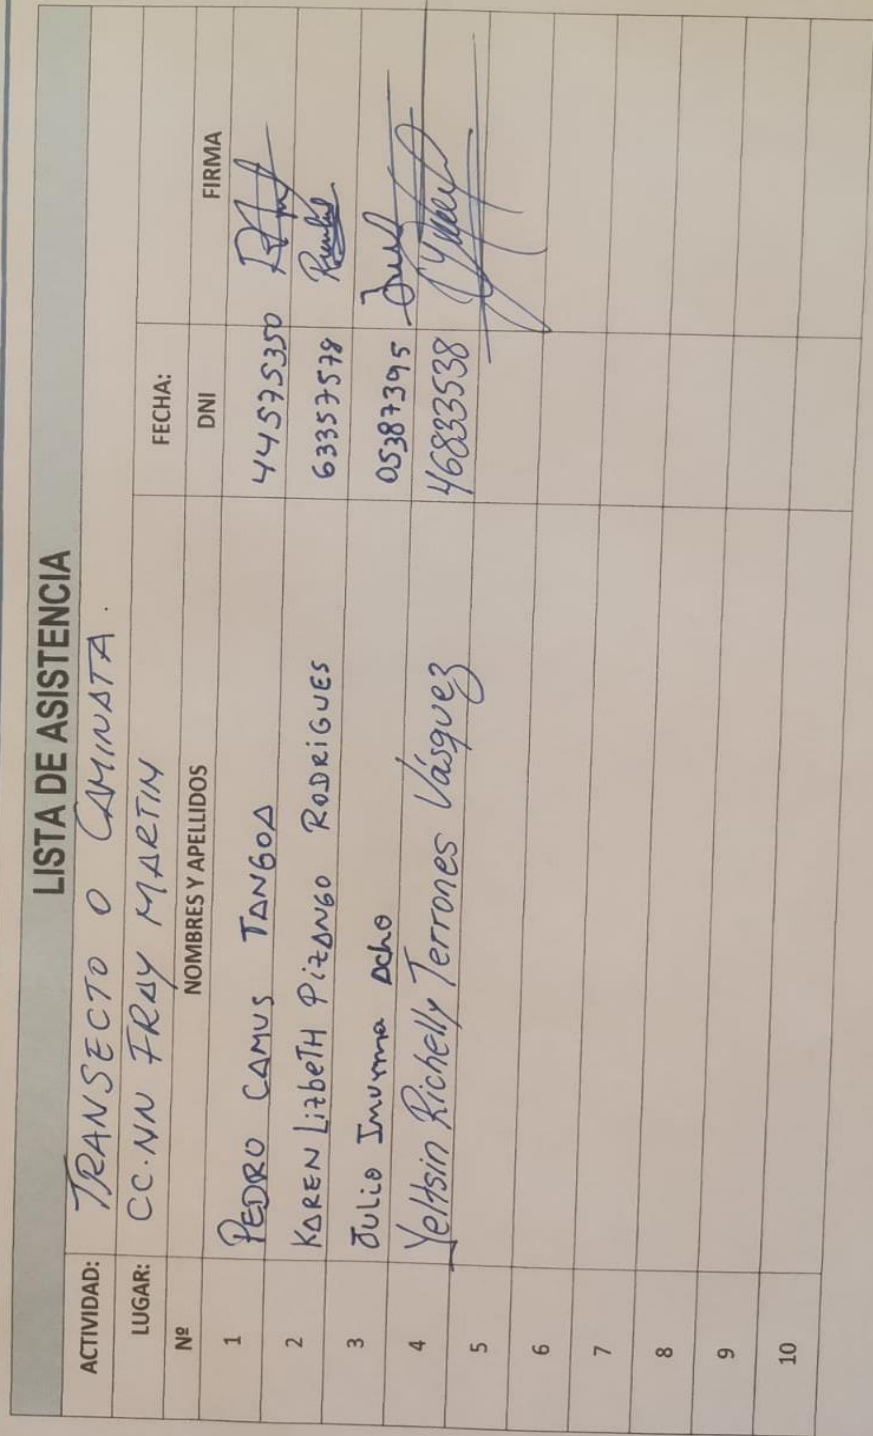 LISTA DE ASISTENCIA
ACTIVIDAD: TRANSECTO O CAMINATA.
LUGAR: CC.NN FRAY MARTIN FECHA:
Nº NOMBRES Y APELLIDOS DNI FIRMA
1 PEDRO CAMUS TANGOA 44575350
2 KAREN LizbeTH PizANGO RODRiGUES 63357578
3 Julio Inuma Acho 05387395
4 Yeltsin Richelly Terrones Vásquez 46833538
5
6
7
8
9
10